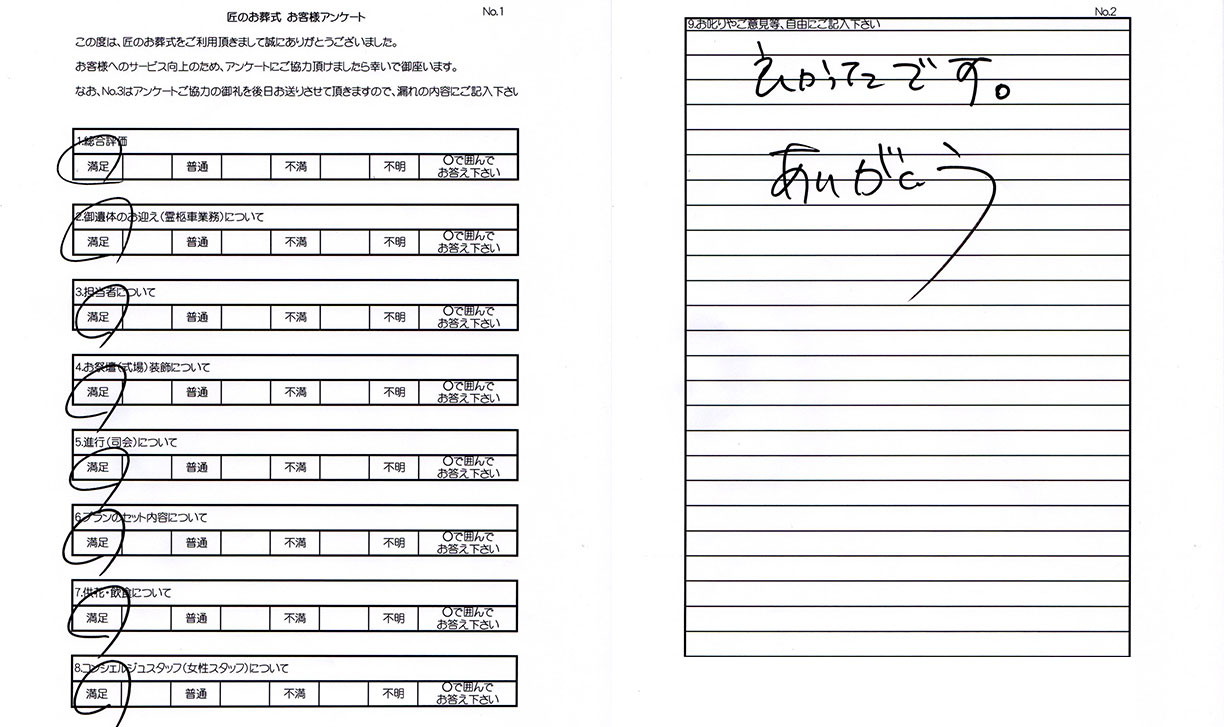 匠のお葬式 お客様アンケート
No.1
この度は、匠のお葬式をご利用頂きまして誠にありがとうございました。
お客様へのサービス向上のため、アンケートにご協力頂けましたら幸いで御座います。
なお、No.3はアンケートご協力の御礼を後日お送りさせて頂きますので、漏れの内容にご記入下さい
1.総合評価
満足 普通 不満 不明 〇で囲んで
お答え下さい
2.御遺体のお迎え(霊柩車業務)について
満足 普通 不満 不明 〇で囲んで
お答え下さい
3.担当者について
満足 普通 不満 不明 〇で囲んで
お答え下さい
4.お祭壇(式場)装飾について
満足 普通 不満 不明 〇で囲んで
お答え下さい
5.進行(司会)について
満足 普通 不満 不明 〇で囲んで
お答え下さい
6.プランのセット内容について
満足 普通 不満 不明 〇で囲んで
お答え下さい
7.供花・飲食について
満足 普通 不満 不明 〇で囲んで
お答え下さい
8.コンシェルジュスタッフ(女性スタッフ)について
満足 普通 不満 不明 〇で囲んで
お答え下さい
No.2
9.お叱りやご意見等、自由にご記入下さい
よかったです。
ありがとう